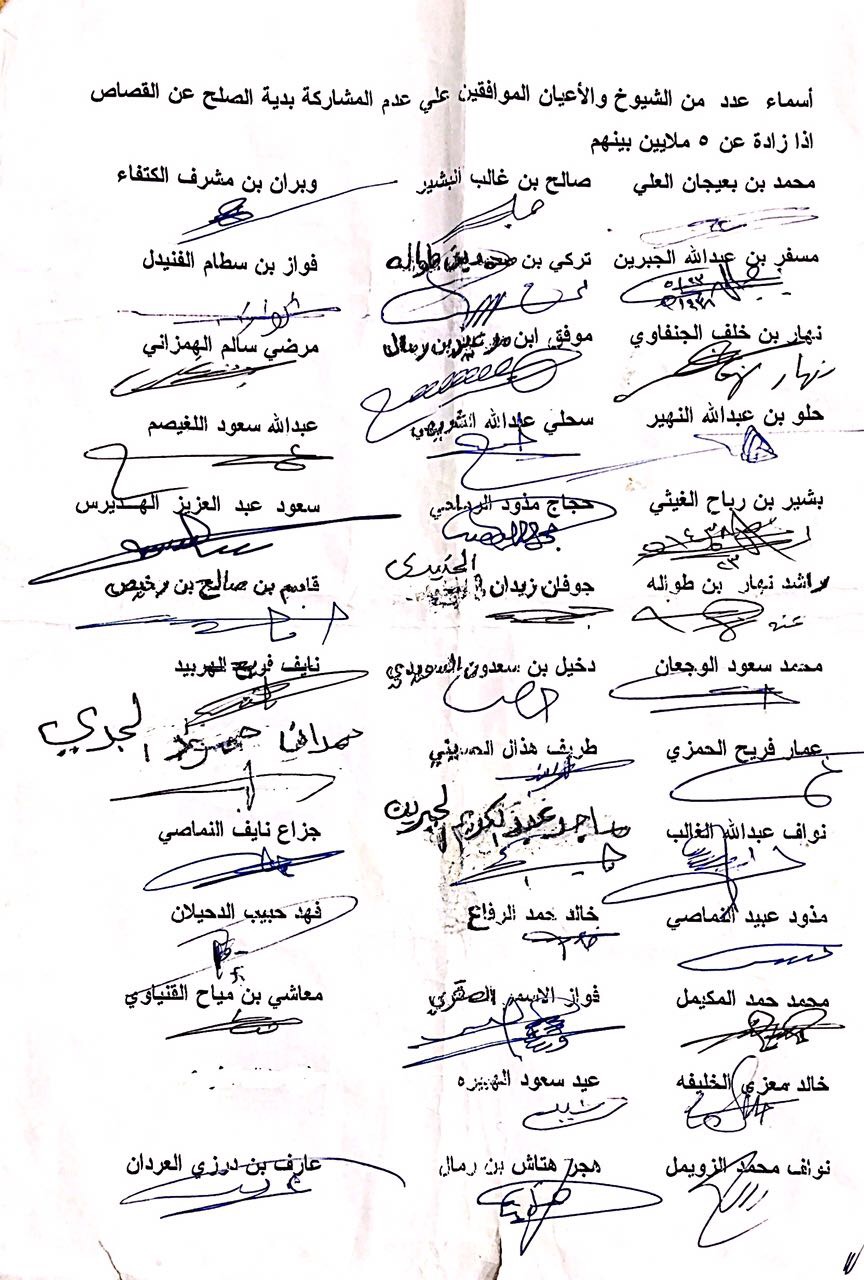 أسماء عدد من الشيوخ والأعيان الموافقين علي عدم المشاركة بدية الصلح عن القصاص
اذا زادة عن ٥ ملايين بينهم
محمد بن بعيجان العلي صالح بن غالب البشير وبران بن مشرف الكتفاء
مسفر بن عبدالله الجبرين تركي بن بن طواله فواز بن سطام الفنيدل
نهار بن خلف الجنفاوي موفق ابن بن رمال مرضي سالم الهمزاني
نهار
حلو بن عبدالله النهير سحلي عبدالله عبدالله سعود اللغيصم
بشير بن رباح الغيثي حجاج مذود الرمالي سعود عبد العزيز الهديرس
راشد نهار بن طواله جوفان زيدان قاسم بن صالح بن رخيص
محمد سعود الوجعان دخيل بن سعدون السويدي نايف فريح الهربيد
عمار فريح الحمزي طريف هذال
نواف عبدالله الغالب ماجد عبدالكريم الجبرين جزاع نايف النماصي
مذود عبيد النماصي خالد حمد الرفاع فهد حبيب الدحيلان
محمد حمد المكيمل فواز الاسمر معاشي بن مياح القنياوي
خالد معزي الخليفه عيد سعود الهبيره
نواف محمد الزويمل هجر هتاش بن رمال عارف بن درزي العردان